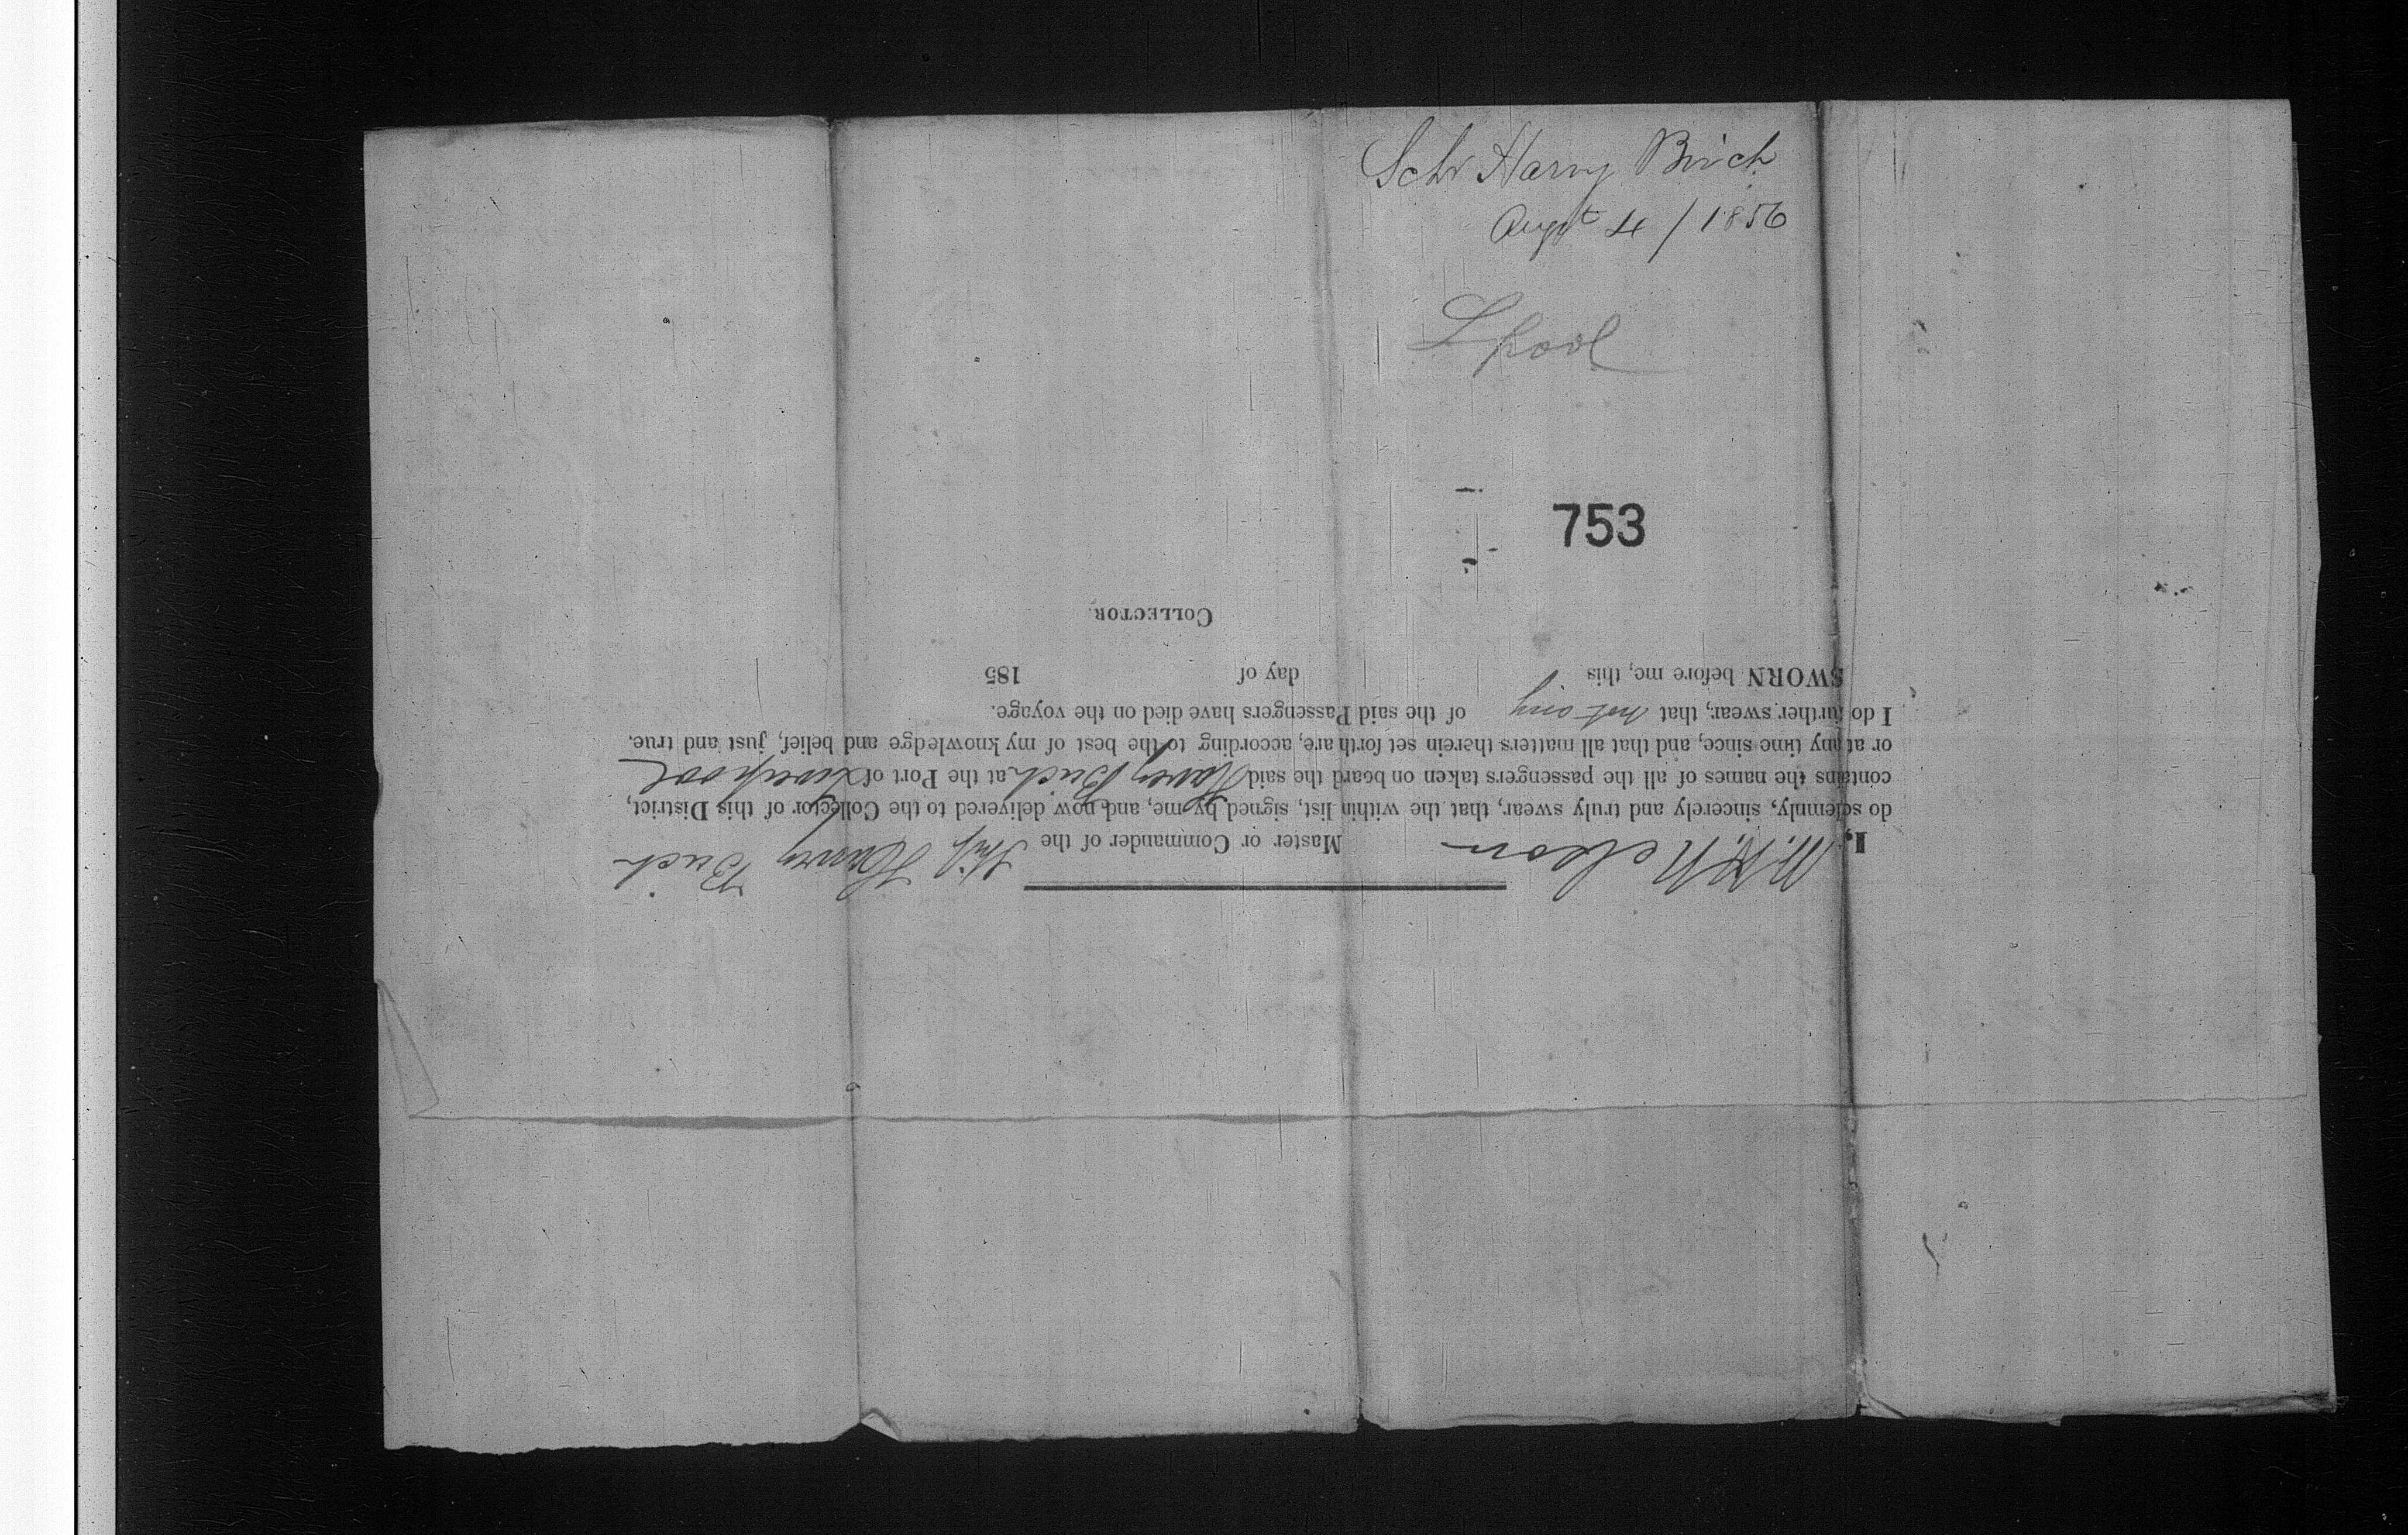 Schr Harry Birch
Augst 4 / 1856
Lpool
753
I, W. H. Nelson Master or Commander of the Ship Harvey Birch
do solemnly, sincerely and truly swear, that the within list, signed by me, and now delivered to the Collector of this District,
contains the names of all the passengers taken on board the said Harvey Birch at the Port of Liverpool
or at any time since, and that all matters therein set forth are, according to the best of my knowledge and belief, just and true.
I do further swear, that not any of the said Passengers have died on the voyage.
SWORN before me, this day of 185
COLLECTOR.